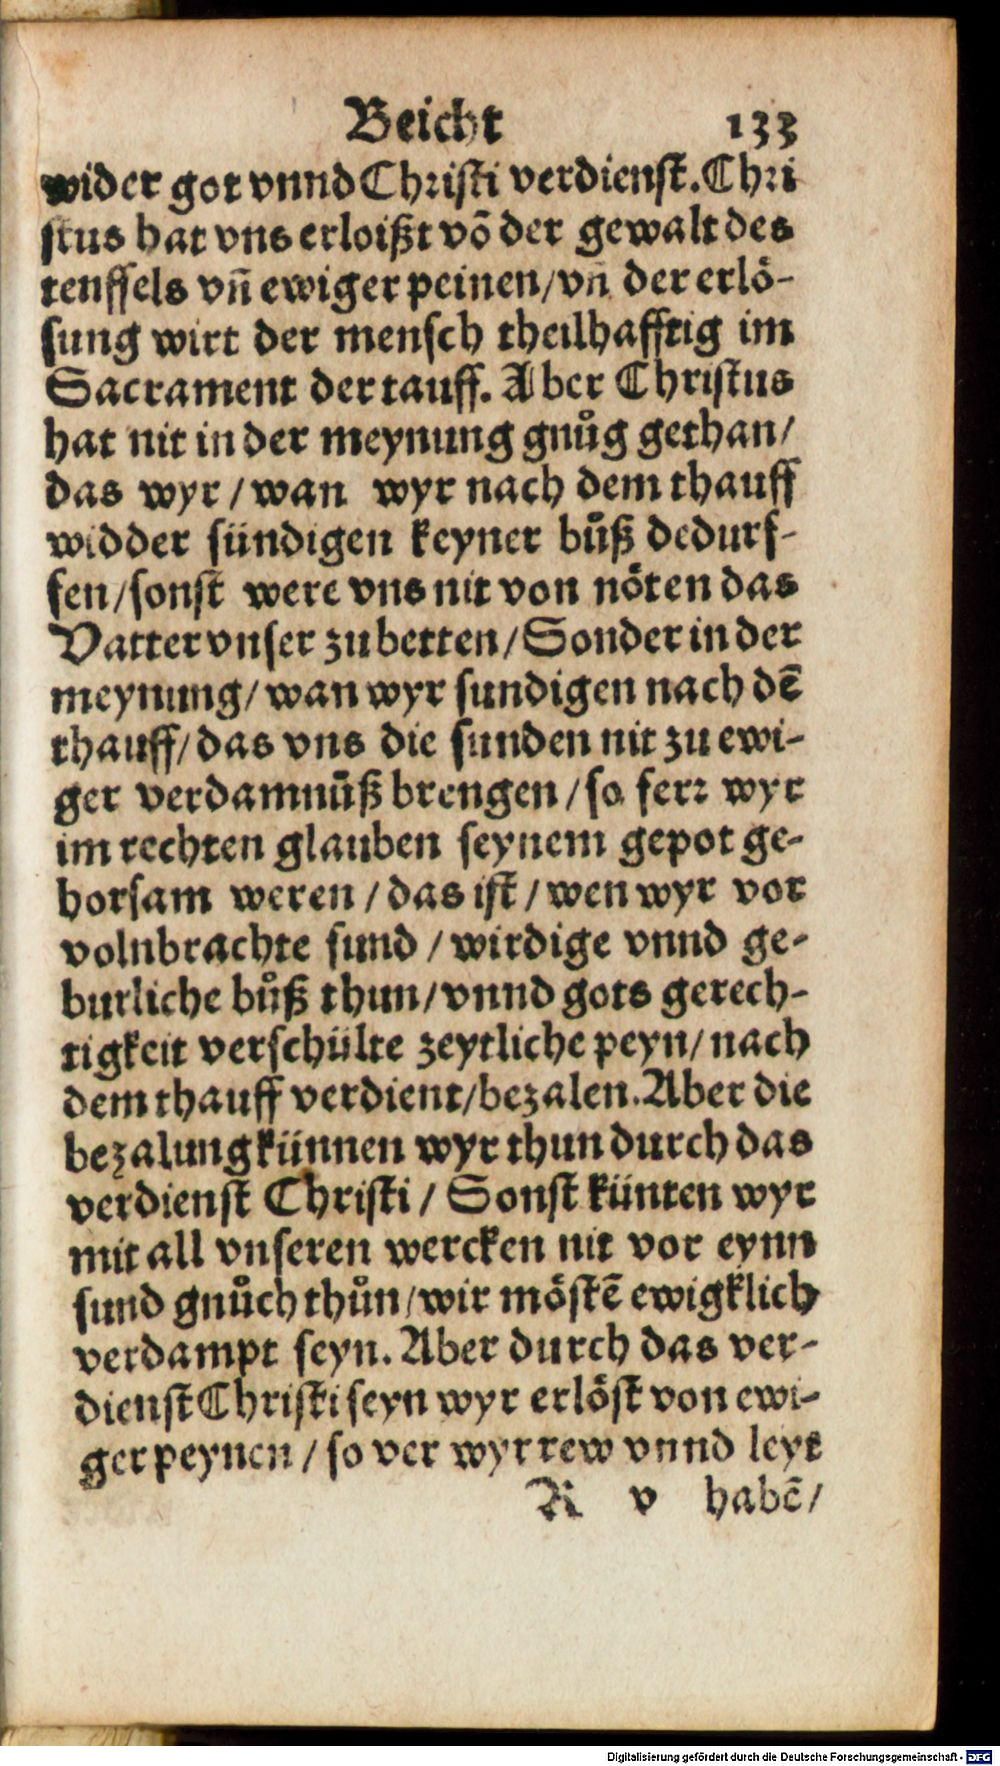 Beicht 133
wider got vnnd Christi verdienst. Chri
stus hat vns erloißt võ der gewalt des
teuffels vñ ewiger peinen/ vñ der erlö-
sung wirt der mensch theilhafftig im
Sacrament der tauff. Aber Christus
hat nit in der meynung gnůg gethan/
das wyr / wan wyr nach dem thauff
widder sündigen keyner bůß dedurf-
fen/ sonst were vns nit von nöten das
Vatter vnser zu betten/ Sonder in der
meynung/ wan wyr sundigen nach dẽ
thauff/ das vns die sunden nit zu ewi-
ger verdamnůß brengen / so ferꝛ wyr
im rechten glauben seynem gepot ge-
horsam weren / das ist / wen wyr vor
volnbrachte sund / wirdige vnnd ge-
burliche bůß thun/ vnnd gots gerech-
tigkeit verschülte zeytliche peyn/ nach
dem thauff verdient/ bezalen. Aber die
bezalung künnen wyr thun durch das
verdienst Christi / Sonst künten wyr
mit all vnseren wercken nit vor eynn
sund gnůch thůn/ wir möstẽ ewigklich
verdampt seyn. Aber durch das ver-
dienst Christi seyn wyr erlöst von ewi-
ger peynen / so ver wyr rew vnnd leyt
R v habẽ/
Digitalisierung gefördert durch die Deutsche Forschungsgemeinschaft - DFG